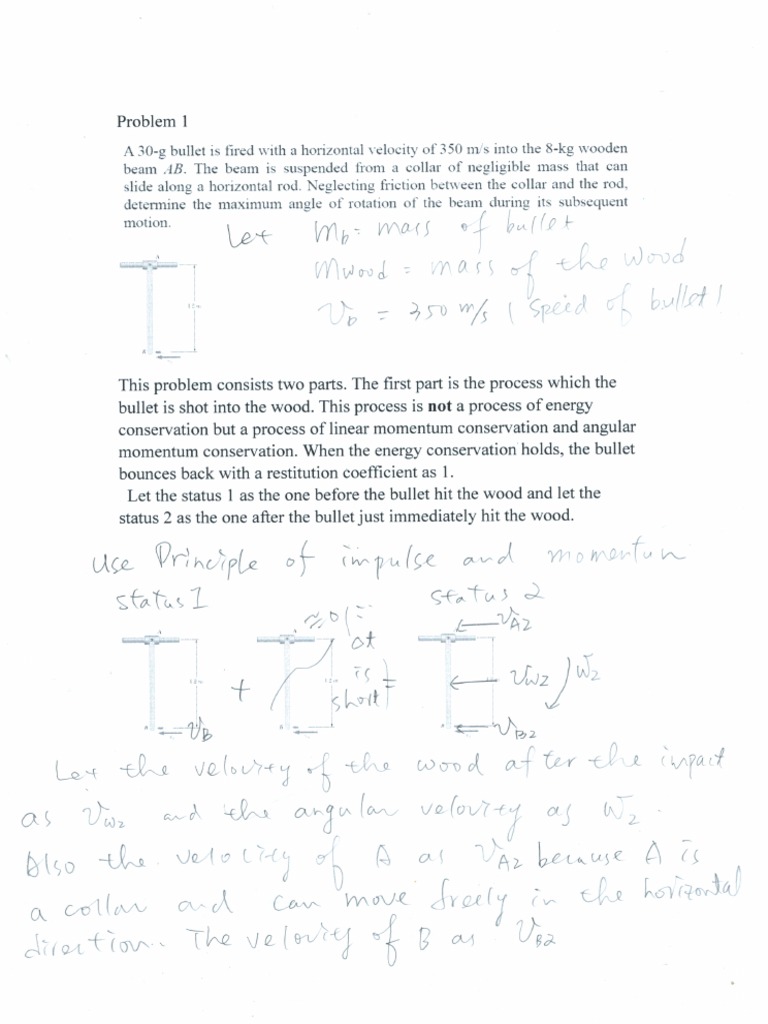 Problem 1
A 30-g bullet is fired with a horizontal velocity of 350 m/s into the 8-kg wooden
beam AB. The beam is suspended from a collar of negligible mass that can
slide along a horizontal rod. Neglecting friction between the collar and the rod,
determine the maximum angle of rotation of the beam during its subsequent
motion.
Let Mb = mass of bullet
Mwood = mass of the wood
Vb = 350 m/s ( speed of bullet )
This problem consists two parts. The first part is the process which the
bullet is shot into the wood. This process is not a process of energy
conservation but a process of linear momentum conservation and angular
momentum conservation. When the energy conservation holds, the bullet
bounces back with a restitution coefficient as 1.
Let the status 1 as the one before the bullet hit the wood and let the
status 2 as the one after the bullet just immediately hit the wood.
Use Principle of impulse and momentum
status 1
status 2
≈0 (∵
Δt
is
short)
+
=
VB
VA2
VW2
W2
VB2
Let the velocity of the wood after the impact
as VW2 and the angular velocity as W2.
Also the velocity of A as VA2 because A is
a collar and can move freely in the horizontal
direction. The velocity of B as VB2